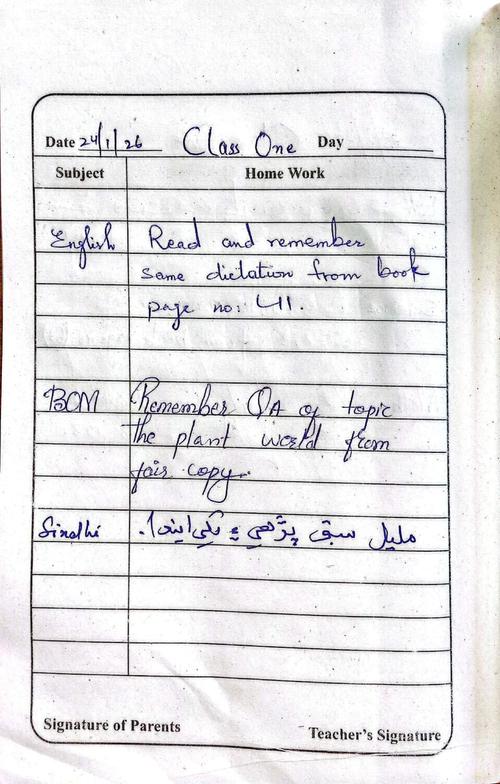 Date 24/1/26 Class One Day
Subject Home Work
English Read and remember
same dictation from book
page no: 411.
BOM Remember QA of topic
the plant world from
fair copy.
Sindhi مليل سبق پڙهي ۽ لکي ايندا.
Signature of Parents Teacher's Signature